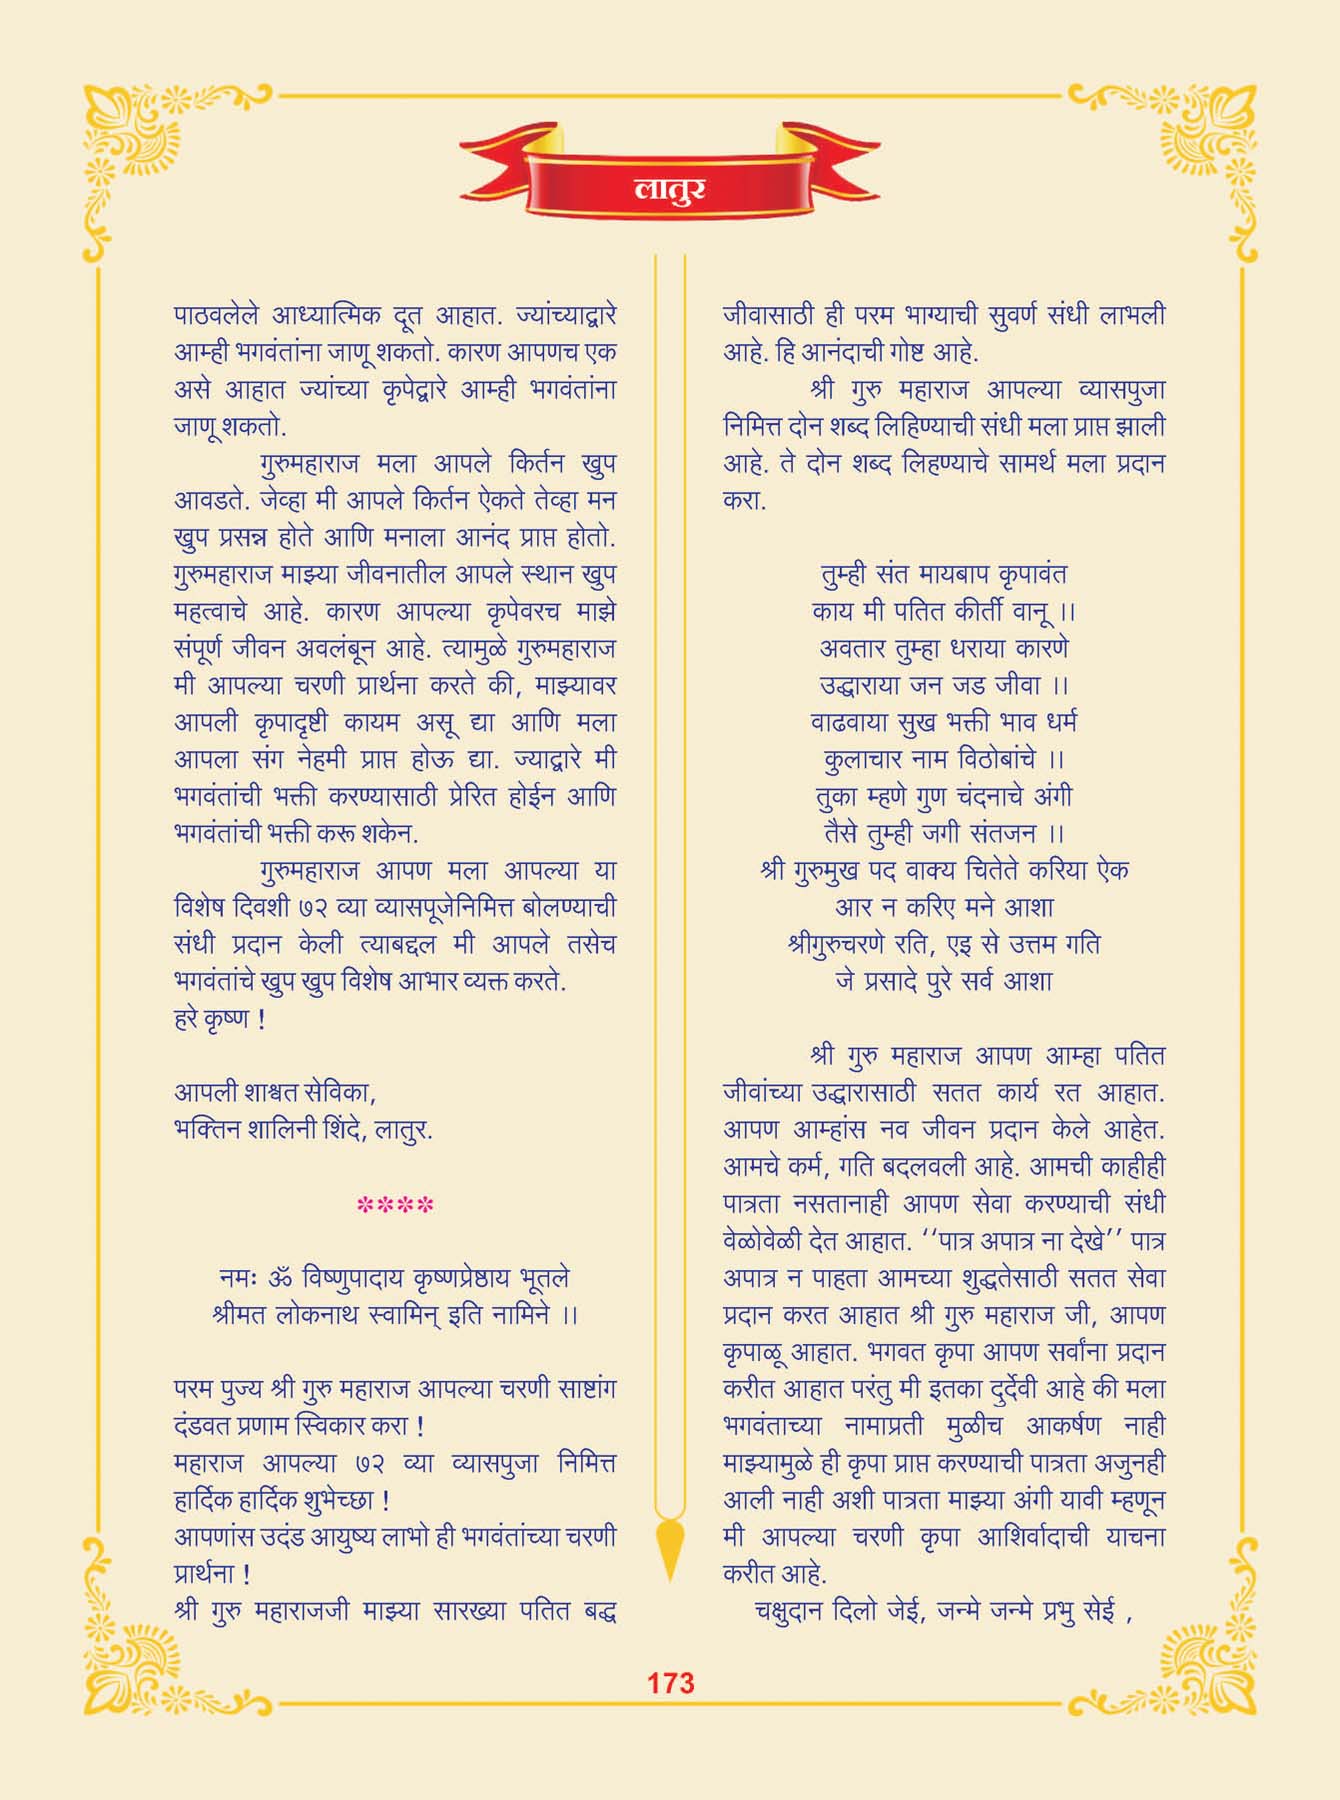 लातुर
पाठवलेले आध्यात्मिक दूत आहात. ज्यांच्याद्वारे
आम्ही भगवंतांना जाणू शकतो. कारण आपणच एक
असे आहात ज्यांच्या कृपेद्वारे आम्ही भगवंतांना
जाणू शकतो.
गुरुमहाराज मला आपले किर्तन खुप
आवडते. जेव्हा मी आपले किर्तन ऐकते तेव्हा मन
खुप प्रसन्न होते आणि मनाला आनंद प्राप्त होतो.
गुरुमहाराज माझ्या जीवनातील आपले स्थान खुप
महत्वाचे आहे. कारण आपल्या कृपेवरच माझे
संपूर्ण जीवन अवलंबून आहे. त्यामुळे गुरुमहाराज
मी आपल्या चरणी प्रार्थना करते की, माझ्यावर
आपली कृपादृष्टी कायम असू द्या आणि मला
आपला संग नेहमी प्राप्त होऊ द्या. ज्याद्वारे मी
भगवंतांची भक्ती करण्यासाठी प्रेरित होईन आणि
भगवंतांची भक्ती करू शकेन.
गुरुमहाराज आपण मला आपल्या या
विशेष दिवशी ७२ व्या व्यासपूजेनिमित्त बोलण्याची
संधी प्रदान केली त्याबद्दल मी आपले तसेच
भगवंतांचे खुप खुप विशेष आभार व्यक्त करते.
हरे कृष्ण !
आपली शाश्वत सेविका,
भक्तिन शालिनी शिंदे, लातुर.
****
नमः ॐ विष्णुपादाय कृष्णप्रेष्ठाय भूतले
श्रीमत लोकनाथ स्वामिन् इति नामिने ।।
परम पुज्य श्री गुरु महाराज आपल्या चरणी साष्टांग
दंडवत प्रणाम स्विकार करा !
महाराज आपल्या ७२ व्या व्यासपुजा निमित्त
हार्दिक हार्दिक शुभेच्छा !
आपणांस उदंड आयुष्य लाभो ही भगवंतांच्या चरणी
प्रार्थना !
श्री गुरु महाराजजी माझ्या सारख्या पतित बद्ध
जीवासाठी ही परम भाग्याची सुवर्ण संधी लाभली
आहे. हि आनंदाची गोष्ट आहे.
श्री गुरु महाराज आपल्या व्यासपुजा
निमित्त दोन शब्द लिहिण्याची संधी मला प्राप्त झाली
आहे. ते दोन शब्द लिहण्याचे सामर्थ मला प्रदान
करा.
तुम्ही संत मायबाप कृपावंत
काय मी पतित कीर्ती वानू ।।
अवतार तुम्हा धराया कारणे
उद्धाराया जन जड जीवा ।।
वाढवाया सुख भक्ती भाव धर्म
कुलाचार नाम विठोबांचे ।।
तुका म्हणे गुण चंदनाचे अंगी
तैसे तुम्ही जगी संतजन ।।
श्री गुरुमुख पद वाक्य चितेते करिया ऐक
आर न करिए मने आशा
श्रीगुरुचरणे रति, एइ से उत्तम गति
जे प्रसादे पुरे सर्व आशा
श्री गुरु महाराज आपण आम्हा पतित
जीवांच्या उद्धारासाठी सतत कार्य रत आहात.
आपण आम्हांस नव जीवन प्रदान केले आहेत.
आमचे कर्म, गति बदलवली आहे. आमची काहीही
पात्रता नसतानाही आपण सेवा करण्याची संधी
वेळोवेळी देत आहात. ‘‘पात्र अपात्र ना देखे’’ पात्र
अपात्र न पाहता आमच्या शुद्धतेसाठी सतत सेवा
प्रदान करत आहात श्री गुरु महाराज जी, आपण
कृपाळू आहात. भगवत कृपा आपण सर्वांना प्रदान
करीत आहात परंतु मी इतका दुर्देवी आहे की मला
भगवंताच्या नामाप्रती मुळीच आकर्षण नाही
माझ्यामुळे ही कृपा प्राप्त करण्याची पात्रता अजुनही
आली नाही अशी पात्रता माझ्या अंगी यावी म्हणून
मी आपल्या चरणी कृपा आशिर्वादाची याचना
करीत आहे.
चक्षुदान दिलो जेई, जन्मे जन्मे प्रभु सेई ,
173